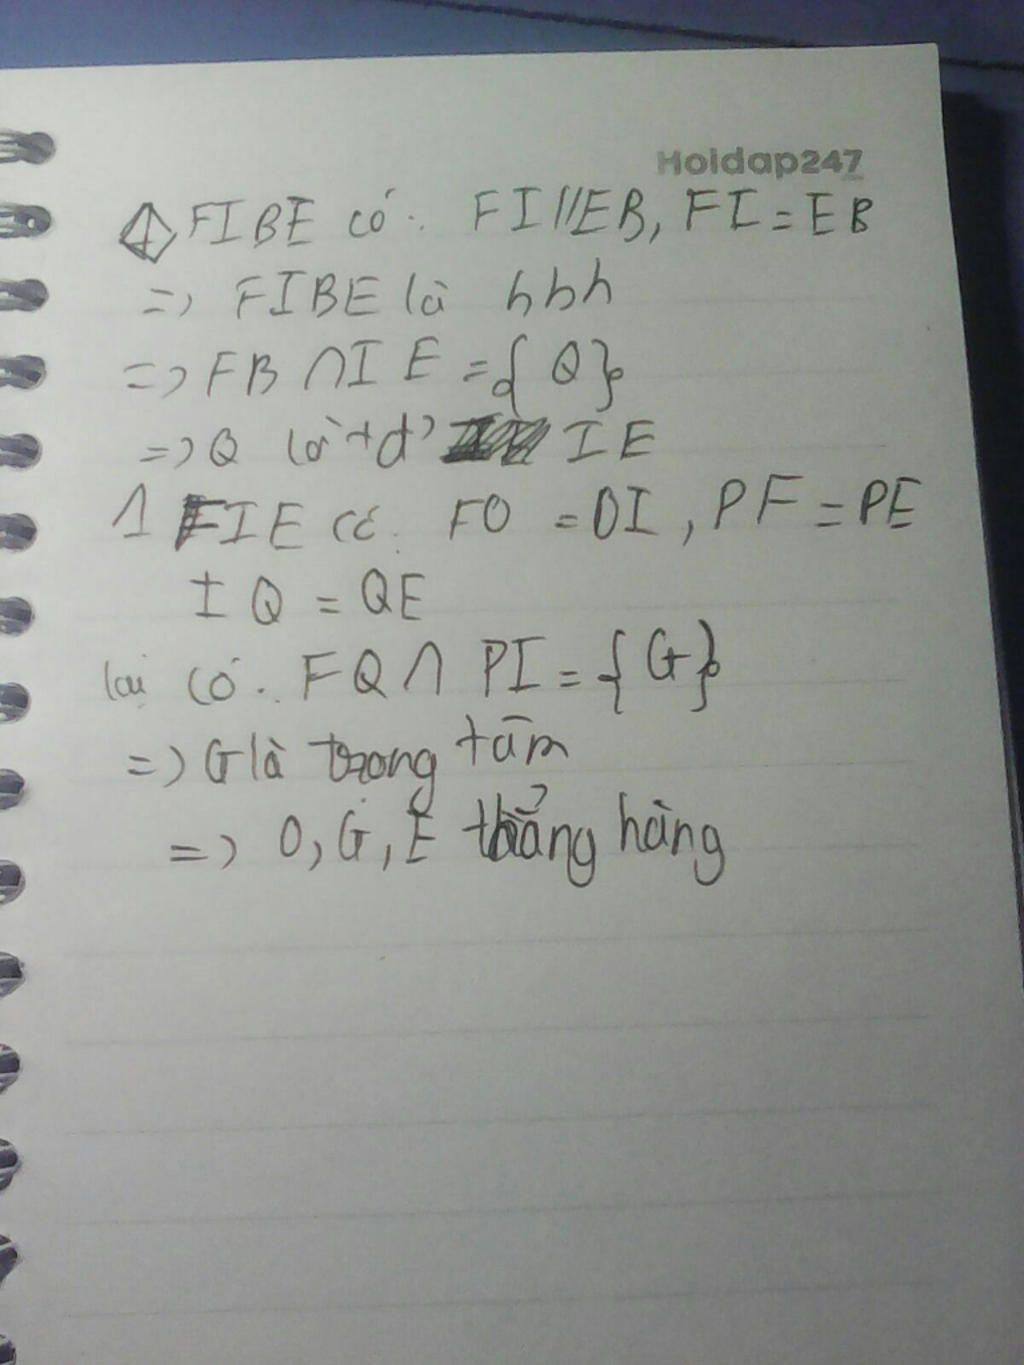 Hoidap247
◇ FIBE có: FI//EB, FI=EB
=> FIBE là hbh
=> FB ∩ IE = {Q}
=> Q là tđ IE
Δ FIE có: FO = OI, PF = PE
IQ = QE
lại có: FQ ∩ PI = {G}
=> G là trọng tâm
=> O, G, E thẳng hàng